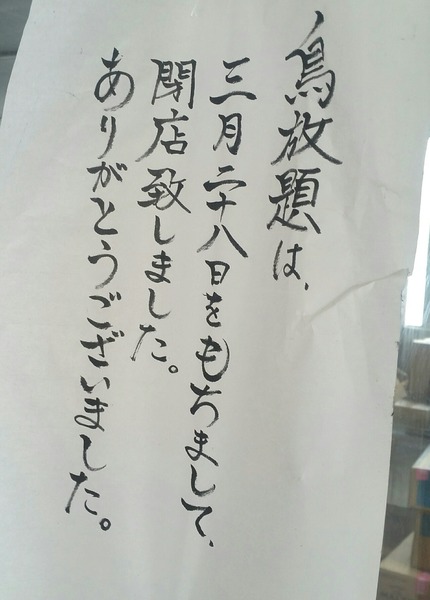 鳥放題は、
三月二十八日をもちまして、
閉店致しました。
ありがとうございました。